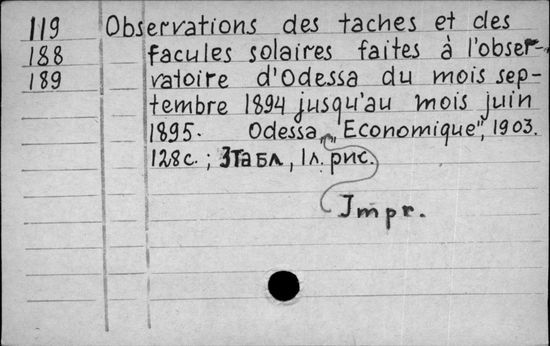 119 Observations des taches et des
188 facules solaires faites à l'obser-
189 vatoire d'Odessa du mois sep-
tembre 1894 jusqu'au mois juin
1895. Odessa, „Economique", 1903.
128 с.; 3 табл, 1 л. рис.
Impr.